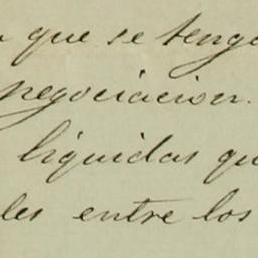 que se tenga
negociacion.
liquidas qu
les entre los